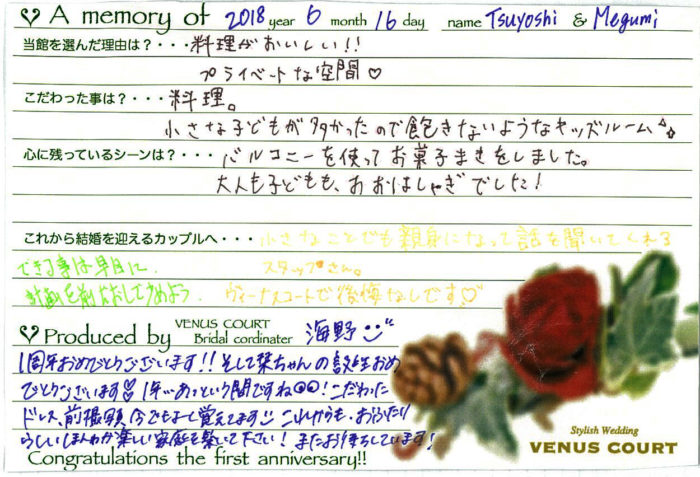 ♡ A memory of 2018 year 6 month 16 day name Tsuyoshi & Megumi
当館を選んだ理由は？・・・料理がおいしい!!
プライベートな空間♡
こだわった事は？・・・料理。
小さな子どもが多かったので飽きないようなキッズルーム☆
心に残っているシーンは？・・・バルコニーを使ってお菓子まきをしました。
大人も子どもも、おおはしゃぎでした！
これから結婚を迎えるカップルへ・・・小さなことでも親身になって話を聞いてくれる
スタッフさん。
できる事は早目に、
計画を前だおしですすめよう。
ヴィーナスコートで後悔なしです♡
♡ Produced by VENUS COURT Bridal cordinater 海野
1周年おめでとうございます!!そして栞ちゃんの誕生おめ
でとうございます♡1年…あっという間ですね！こだわった
ドレス、前撮り、今でもよーく覚えてます。これからも、おふたり
らしいほんわか楽しい家庭を築いて下さい！またお待ちしています！
Congratulations the first anniversary!!
Stylish Wedding
VENUS COURT